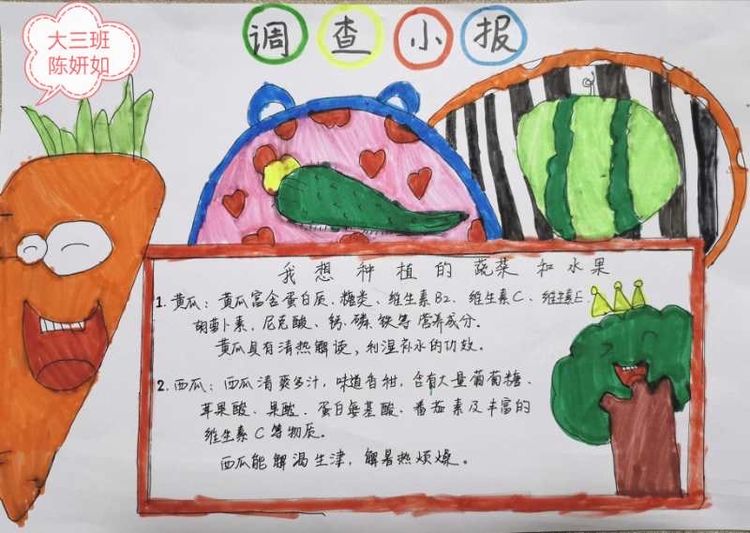 大三班
陈妍如
调查小报
我想种植的蔬菜和水果
1. 黄瓜：黄瓜富含蛋白质、糖类、维生素B2、维生素C、维生素E、
胡萝卜素、尼克酸、钙、磷、铁等营养成分。
黄瓜具有清热解读，利湿补水的功效。
2. 西瓜：西瓜清爽多汁，味道香甜，含有大量葡萄糖、
苹果酸、果酸、蛋白氨基酸、番茄素及丰富的
维生素C等物质。
西瓜能解渴生津，解暑热烦燥。